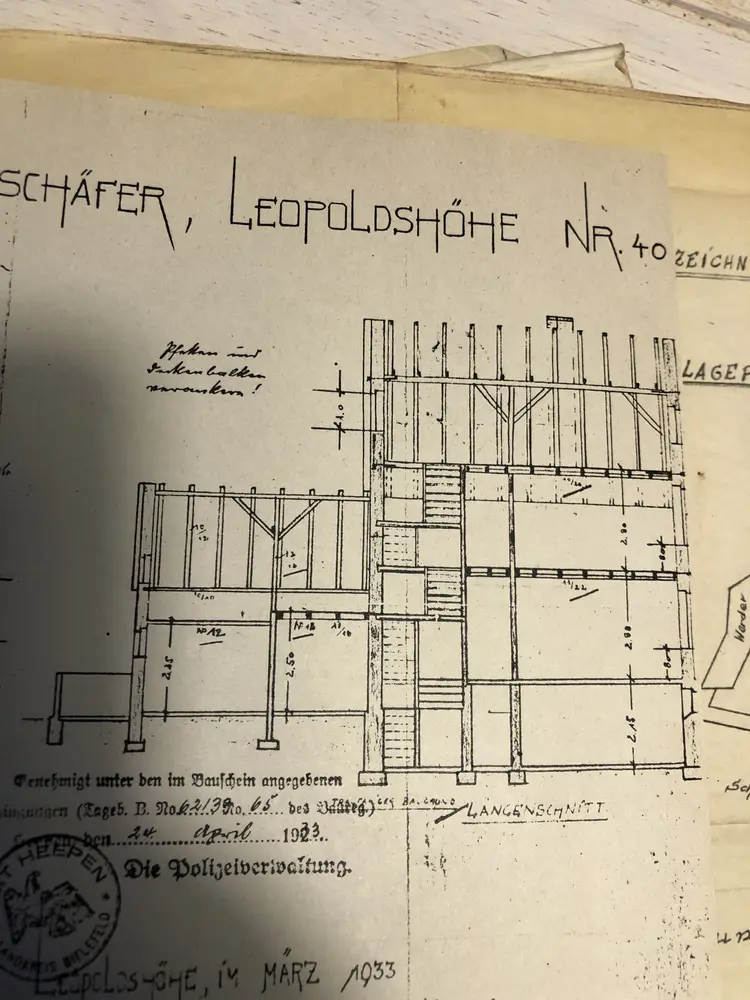 SCHÄFER, LEOPOLDSHÖHE NR. 40
ZEICHN
LAGEP
Pfetten und
Deckenbalken
verankern!
1.0
10/12
12
2.80
2.80
2.15
2.50
2.15
Werder
Genehmigt unter den im Bauschein angegebenen
ingungen (Tageb. B. No. 62/39 No. 65 des
den 24. April 1933.
Die Polizeiverwaltung.
LÄNGENSCHNITT.
T HEEPEN
LANDKREIS BIELEFELD
LEOPOLDSHÖHE, IM MÄRZ 1933